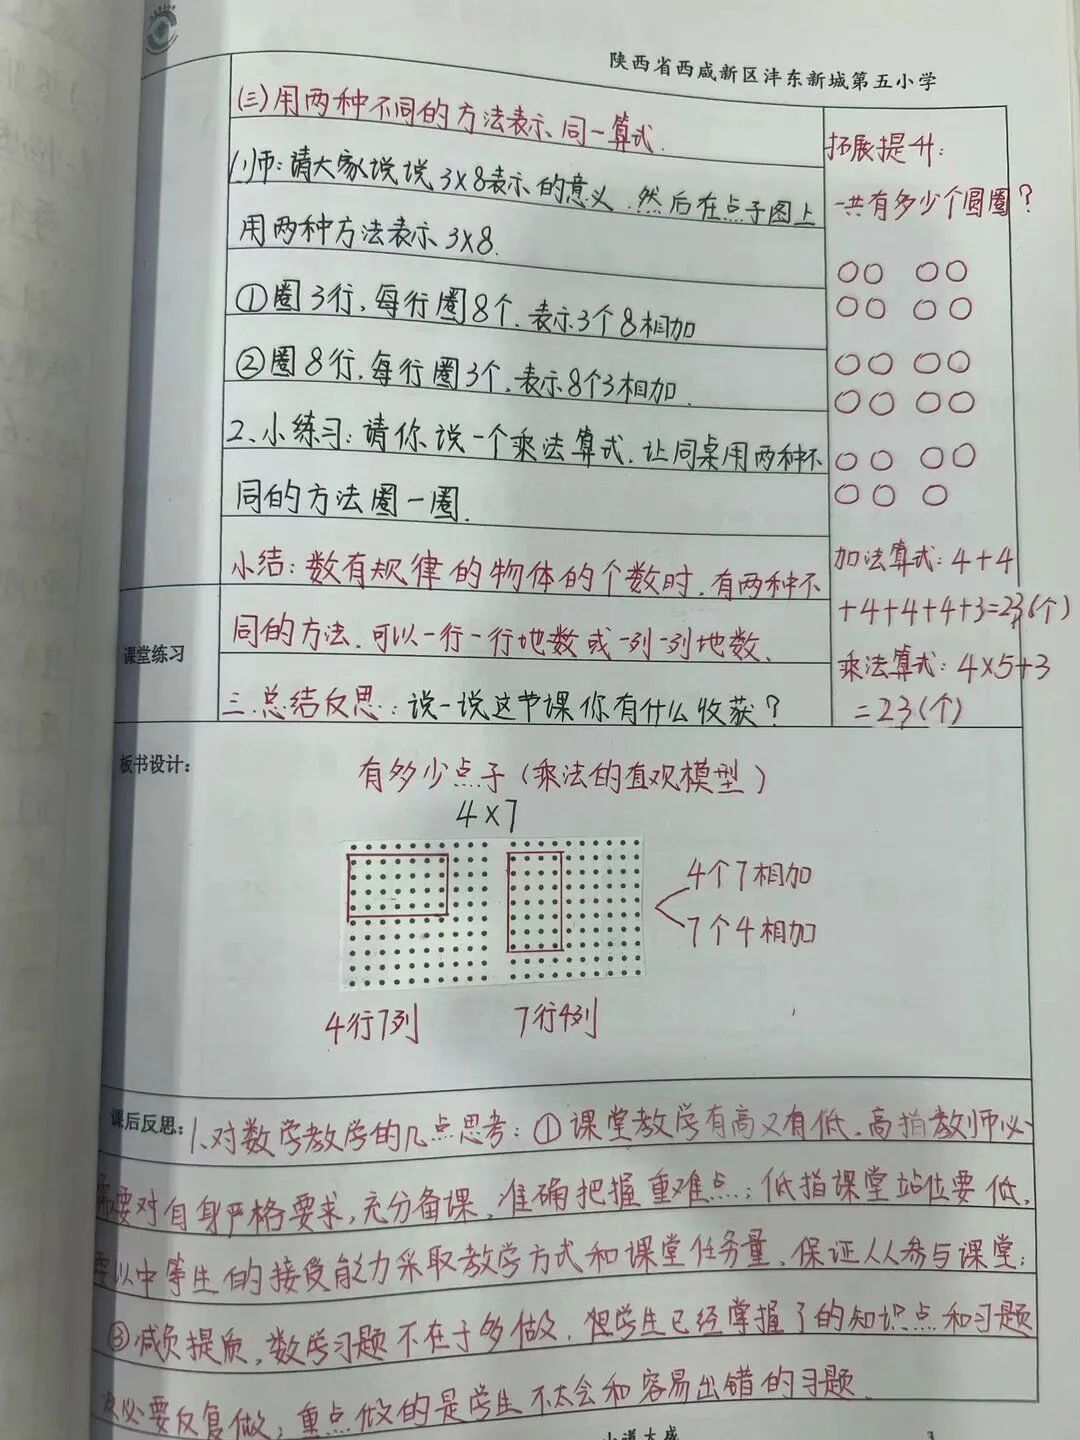 陕西省西咸新区沣东新城第五小学
(三)用两种不同的方法表示同一算式.
1、师:请大家说说3×8表示的意义.然后在点子图上
用两种方法表示3×8.
①圈3行,每行圈8个.表示3个8相加
②圈8行,每行圈3个,表示8个3相加.
2、小练习:请你说一个乘法算式,让同桌用两种不
同的方法圈一圈.
小结:数有规律的物体的个数时,有两种不
同的方法.可以一行一行地数或一列一列地数、
三.总结反思:说一说这节课你有什么收获?
拓展提升:
一共有多少个圆圈?
加法算式:4+4
+4+4+4+3=23(个)
乘法算式:4×5+3
=23(个)
课堂练习
板书设计:
有多少点子(乘法的直观模型)
4×7
4个7相加
7个4相加
4行7列
7行4列
课后反思:1、对数学教学的几点思考:①课堂教学有高又有低、高指教师必
需要对自身严格要求,充分备课、准确把握重难点;低指课堂站位要低,
要以中等生的接受能力采取教学方式和课堂任务量、保证人人参与课堂;
③减负提质,数学习题不在于多做,但学生已经掌握了的知识点和习题
必要反复做,重点做的是学生不太会和容易出错的习题.
3